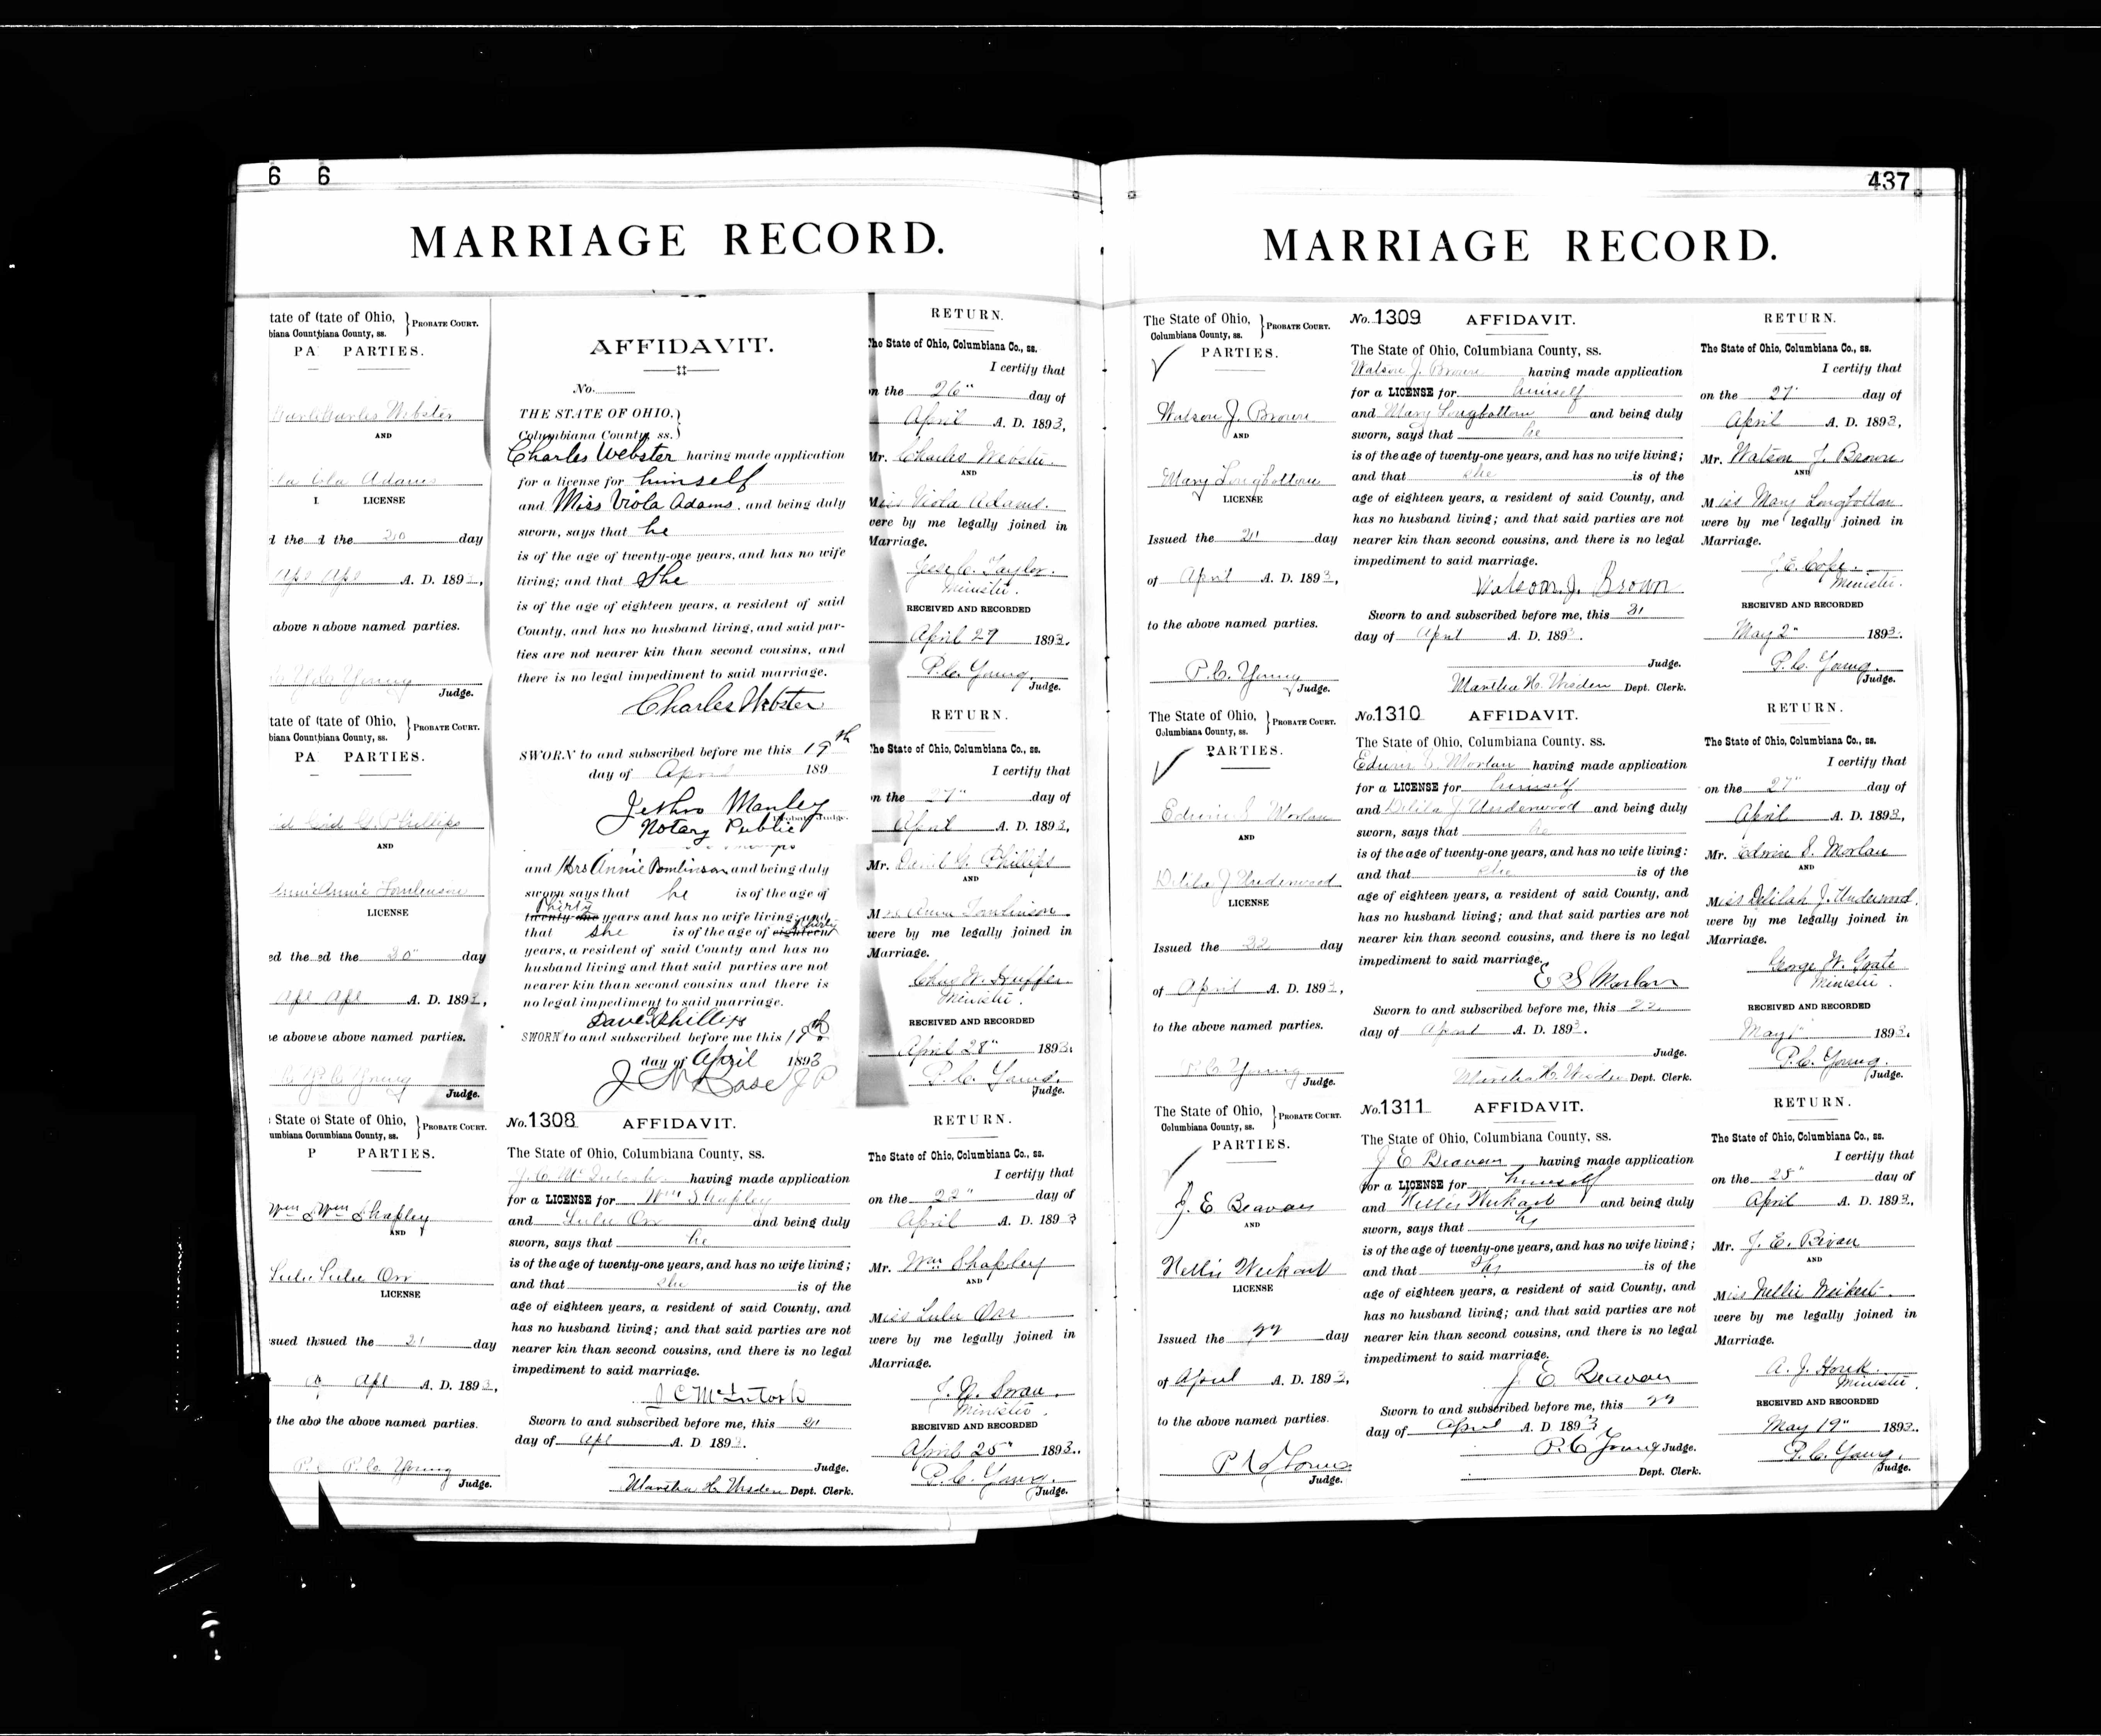 6 6
MARRIAGE RECORD.
tate of (tate of Ohio, } PROBATE COURT.
biana County, biana County, ss.
PA PARTIES.
Charles Webster
AND
Ola Adams
LICENSE
d the d the 20 day
Apl Apl A. D. 1893,
above n above named parties.
P. C. Young
Judge.
AFFIDAVIT.
No.
THE STATE OF OHIO, }
Columbiana County, ss. }
Charles Webster having made application
for a license for himself
and Miss Viola Adams, and being duly
sworn, says that he
is of the age of twenty-one years, and has no wife
living; and that She
is of the age of eighteen years, a resident of said
County, and has no husband living, and said par-
ties are not nearer kin than second cousins, and
there is no legal impediment to said marriage.
Charles Webster
SWORN to and subscribed before me this 19th
day of April 189
Jethro Manley
Notary Public
RETURN.
The State of Ohio, Columbiana Co., ss.
I certify that
on the 26" day of
April A. D. 1893,
Mr. Charles Webster.
AND
Miss Viola Adams.
were by me legally joined in
Marriage.
Jesse C. Taylor.
Minister.
RECEIVED AND RECORDED
April 27 1893.
P. C. Young
Judge.
tate of (tate of Ohio, } PROBATE COURT.
biana County, biana County, ss.
PA PARTIES.
G. Phillips
AND
Annie Tomlinson
LICENSE
ed the ed the 20" day
Apl Apl A. D. 1893,
above named parties.
P. C. Young
Judge.
and Mrs Annie Tomlinson and being duly
sworn says that he is of the age of
Thirty
twenty-one years and has no wife living; and
that she is of the age of eighteen thirty
years, a resident of said County and has no
husband living and that said parties are not
nearer kin than second cousins and there is
no legal impediment to said marriage.
Dave Phillips
SWORN to and subscribed before me this 19th
day of April 1893
RETURN.
The State of Ohio, Columbiana Co., ss.
I certify that
on the 27" day of
April A. D. 1893,
Mr. David G. Phillips
AND
Mrs Anna Tomlinson
were by me legally joined in
Marriage.
Minister.
RECEIVED AND RECORDED
April 28" 1893.
P. C. Young.
Judge.
State of State of Ohio, } PROBATE COURT.
umbiana County, ss.
P PARTIES.
Wm Shapley
AND
Lulu Orr
LICENSE
sued the 21 day
Apl A. D. 1893,
the above named parties.
P. C. Young
Judge.
No. 1308 AFFIDAVIT.
The State of Ohio, Columbiana County, ss.
J. C. McIntosh having made application
for a LICENSE for Wm Shapley
and Lulu Orr and being duly
sworn, says that he
is of the age of twenty-one years, and has no wife living;
and that she is of the
age of eighteen years, a resident of said County, and
has no husband living; and that said parties are not
nearer kin than second cousins, and there is no legal
impediment to said marriage.
J C McIntosh
Sworn to and subscribed before me, this 21
day of Apl A. D 1893.
Judge.
Martha H. Dept. Clerk.
RETURN.
The State of Ohio, Columbiana Co., ss.
I certify that
on the 22" day of
April A. D. 1893
Mr. Wm Shapley
AND
Miss Lulu Orr
were by me legally joined in
Marriage.
Swan.
Minister.
RECEIVED AND RECORDED
April 25" 1893.
P. C. Young.
Judge.
437
MARRIAGE RECORD.
The State of Ohio, } PROBATE COURT.
Columbiana County, ss.
PARTIES.
Watson J. Brown
AND
Mary Longbottom
LICENSE
Issued the 21 day
of April A. D. 1893,
to the above named parties.
P. C. Young
Judge.
No. 1309 AFFIDAVIT.
The State of Ohio, Columbiana County, ss.
Watson J. Brown having made application
for a LICENSE for himself
and Mary Longbottom and being duly
sworn, says that he
is of the age of twenty-one years, and has no wife living;
and that she is of the
age of eighteen years, a resident of said County, and
has no husband living; and that said parties are not
nearer kin than second cousins, and there is no legal
impediment to said marriage.
Watson. J. Brown
Sworn to and subscribed before me, this 21
day of April A. D. 1893.
Judge.
Martha H. Dept. Clerk.
RETURN.
The State of Ohio, Columbiana Co., ss.
I certify that
on the 27" day of
April A. D. 1893,
Mr. Watson J. Brown
AND
Miss Mary Longbottom
were by me legally joined in
Marriage.
J. E. Cope.
Minister.
RECEIVED AND RECORDED
May 2" 1893.
P. C. Young.
Judge.
The State of Ohio, } PROBATE COURT.
Columbiana County, ss.
PARTIES.
Edwin S Morlan
AND
Delila J Underwood
LICENSE
Issued the 22 day
of April A. D. 1893,
to the above named parties.
P. C. Young
Judge.
No. 1310 AFFIDAVIT.
The State of Ohio, Columbiana County. ss.
Edwin S. Morlan having made application
for a LICENSE for himself
and Delila J Underwood and being duly
sworn, says that he
is of the age of twenty-one years, and has no wife living:
and that she is of the
age of eighteen years, a resident of said County, and
has no husband living; and that said parties are not
nearer kin than second cousins, and there is no legal
impediment to said marriage.
E S Morlan
Sworn to and subscribed before me, this 22
day of April A. D. 1893.
Judge.
Martha H. Dept. Clerk.
RETURN.
The State of Ohio, Columbiana Co., ss.
I certify that
on the 27" day of
April A. D. 1893,
Mr. Edwin S. Morlan
AND
Miss Delilah J. Underwood,
were by me legally joined in
Marriage.
George W. Grate
Minister.
RECEIVED AND RECORDED
May 1" 1893.
P. C. Young.
Judge.
The State of Ohio, } PROBATE COURT.
Columbiana County, ss.
PARTIES.
J. E Beavan
AND
Nellie Weikart
LICENSE
Issued the 22 day
of April A. D. 1893,
to the above named parties.
P C Young
Judge.
No. 1311 AFFIDAVIT.
The State of Ohio, Columbiana County, ss.
J E Beavan having made application
for a LICENSE for himself
and Nellie Weikart and being duly
sworn, says that he
is of the age of twenty-one years, and has no wife living;
and that She is of the
age of eighteen years, a resident of said County, and
has no husband living; and that said parties are not
nearer kin than second cousins, and there is no legal
impediment to said marriage.
J. E. Beavan
Sworn to and subscribed before me, this 22
day of April A. D. 1893
P. C Young Judge.
Dept. Clerk.
RETURN.
The State of Ohio, Columbiana Co., ss.
I certify that
on the 28" day of
April A. D. 1893,
Mr. J. E. Bevan
AND
Miss Nellie Weikert.
were by me legally joined in
Marriage.
A. J. Houk.
Minister.
RECEIVED AND RECORDED
May 19" 1893.
P. C. Young.
Judge.